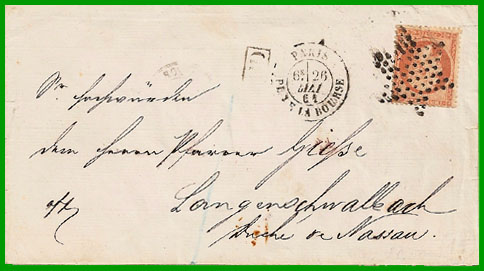 PARIS
6E 26
MAI
64
PL. DE LA BOURSE
PD
Sr. Hochwürden
dem Herrn Pfarrer Giesse
Langenschwalbach
Duché de Nassau.